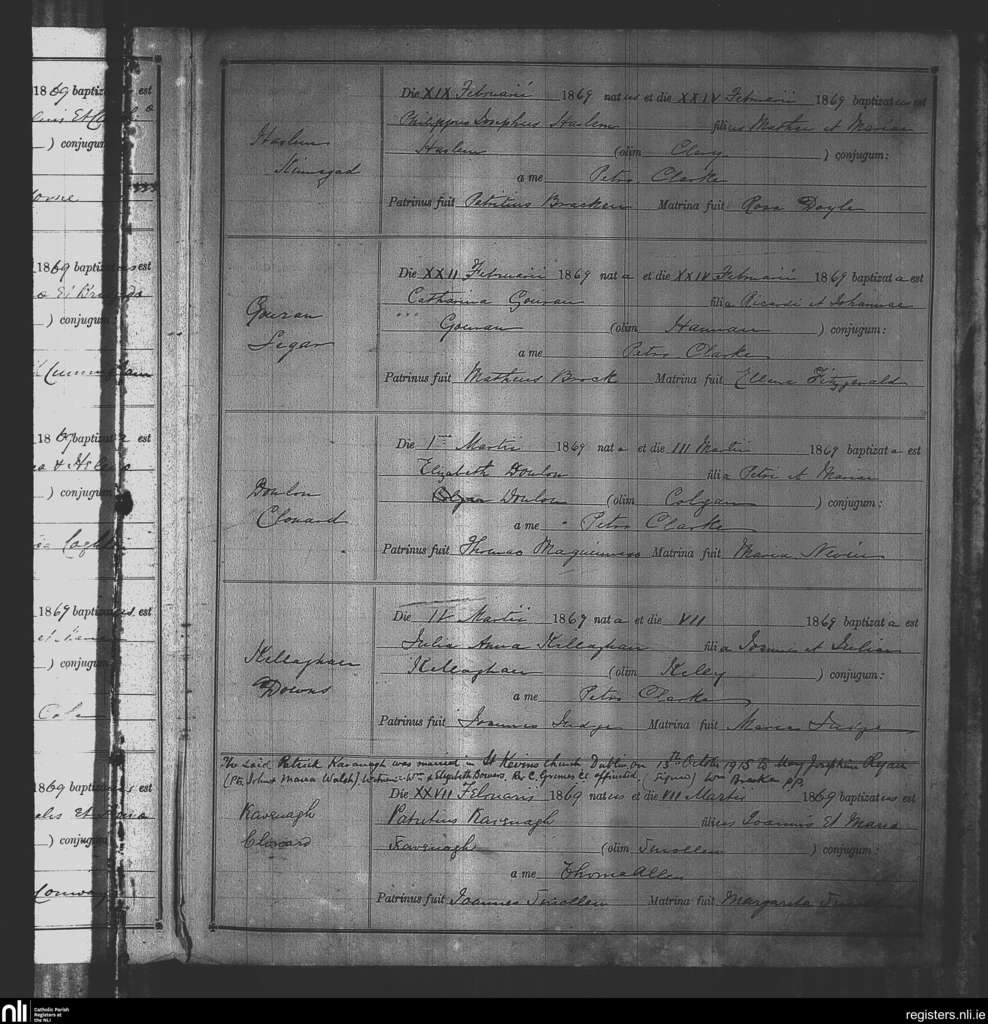 1869 baptiz
) conjugum
1869 baptiz est
) conjugum
Cunningham
1869 baptizat est
) conjugum
1869 baptizatus est
) conjugum
1869 baptizatus est
) conjugum
Conway
Die XIX Februarii 1869 natus et die XXIV Februarii 1869 baptizatus est
Philippus Josephus Haslem filius Mathei et Mariae
Haslem
Haslem (olim Clary ) conjugum:
a me Petro Clarke
Patrinus fuit Patritius Bracken Matrina fuit Rosa Doyle
Die XXII Februarii 1869 nata et die XXIV Februarii 1869 baptizata est
Catharina Gouran filia Ricardi et Johannae
Gouran
Gouran (olim Hannan ) conjugum:
Segar
a me Petro Clarke
Patrinus fuit Matheus Brock Matrina fuit Ellena Fitzgerald
Die 1ma Martii 1869 nata et die III Martii 1869 baptizata est
Elizabeth Doulon filia Petri et Mariae
Doulon
Colgan Doulon (olim Colgan ) conjugum:
Clonard
a me Petro Clarke
Patrinus fuit Thomas Matrina fuit Maria Nevin
Die IV Martii 1869 nata et die VII 1869 baptizata est
Julia Anna Killaghan filia Joannis et Juliae
Killaghan
Killaghan (olim Kelly ) conjugum:
Downs
a me Petro Clarke
Patrinus fuit Joannes Judge Matrina fuit Maria Judge
The said Patrick Kavanagh was married in St Kevins church Dublin on 13th October 1915 to May Josephine Ryan
(Pts. John & Maria Walsh). Witnesses Wm & Elizabeth Bowers. Rev C. Grimes CC officiated. (signed) Wm Bracken P.P.
Die XXVII Februarii 1869 natus et die VII Martii 1869 baptizatus est
Kavenagh
Patritius Kavenagh filius Joannis Et Maria
Clonard
Kavenagh (olim ) conjugum:
a me Thoma Allen
Patrinus fuit Joannes Matrina fuit Margarita
nli
Catholic Parish
Registers at
the NLI
registers.nli.ie